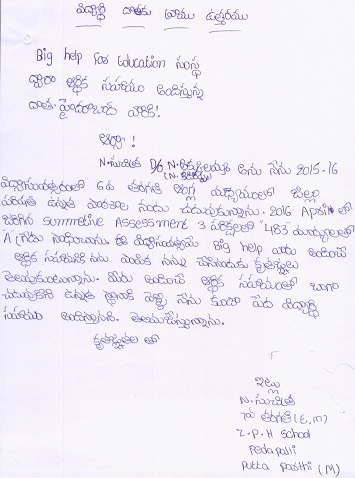 విద్యార్థి దాతకు రాయు ఉత్తరము
Big help for Education సంస్థ
ద్వారా ఆర్థిక సహాయం అందిస్తున్న
దాత. హైదరాబాద్ వారికి!
ఆర్యా!
N. సుచరిత D/o N. అను నేను 2015-16
విద్యాసంవత్సరంలో 6వ తరగతి ఆంగ్ల మాధ్యమంలో జిల్లా
పరిషత్ ఉన్నత పాఠశాల నందు చదువుకున్నాను. 2016 April లో
జరిగిన Summetive Assessment 3 పరీక్షలలో "483 మార్కులతో
'A' గ్రేడు సాధించాను. ఈ విద్యాసంవత్సరం Big help వారు అందించే
ఆర్థిక సహాయానికి నన్ను ఎంపిక చేసినందుకు కృతజ్ఞతలు
తెలుపుకుంటున్నాను. మీరు అందించే ఆర్థిక సహాయంతో బాగా
చదువుకొని ఉన్నత స్థానానికి వెళ్లి నేను కూడా పేద విద్యార్థి
సహాయం అందిస్తానని. తెలియజేస్తున్నాను.
కృతజ్ఞతల తో
ఇట్లు
N. సుచరిత
7వ తరగతి (E.M)
Z.P.H School
Pedapalli
Putta Parthi (M)